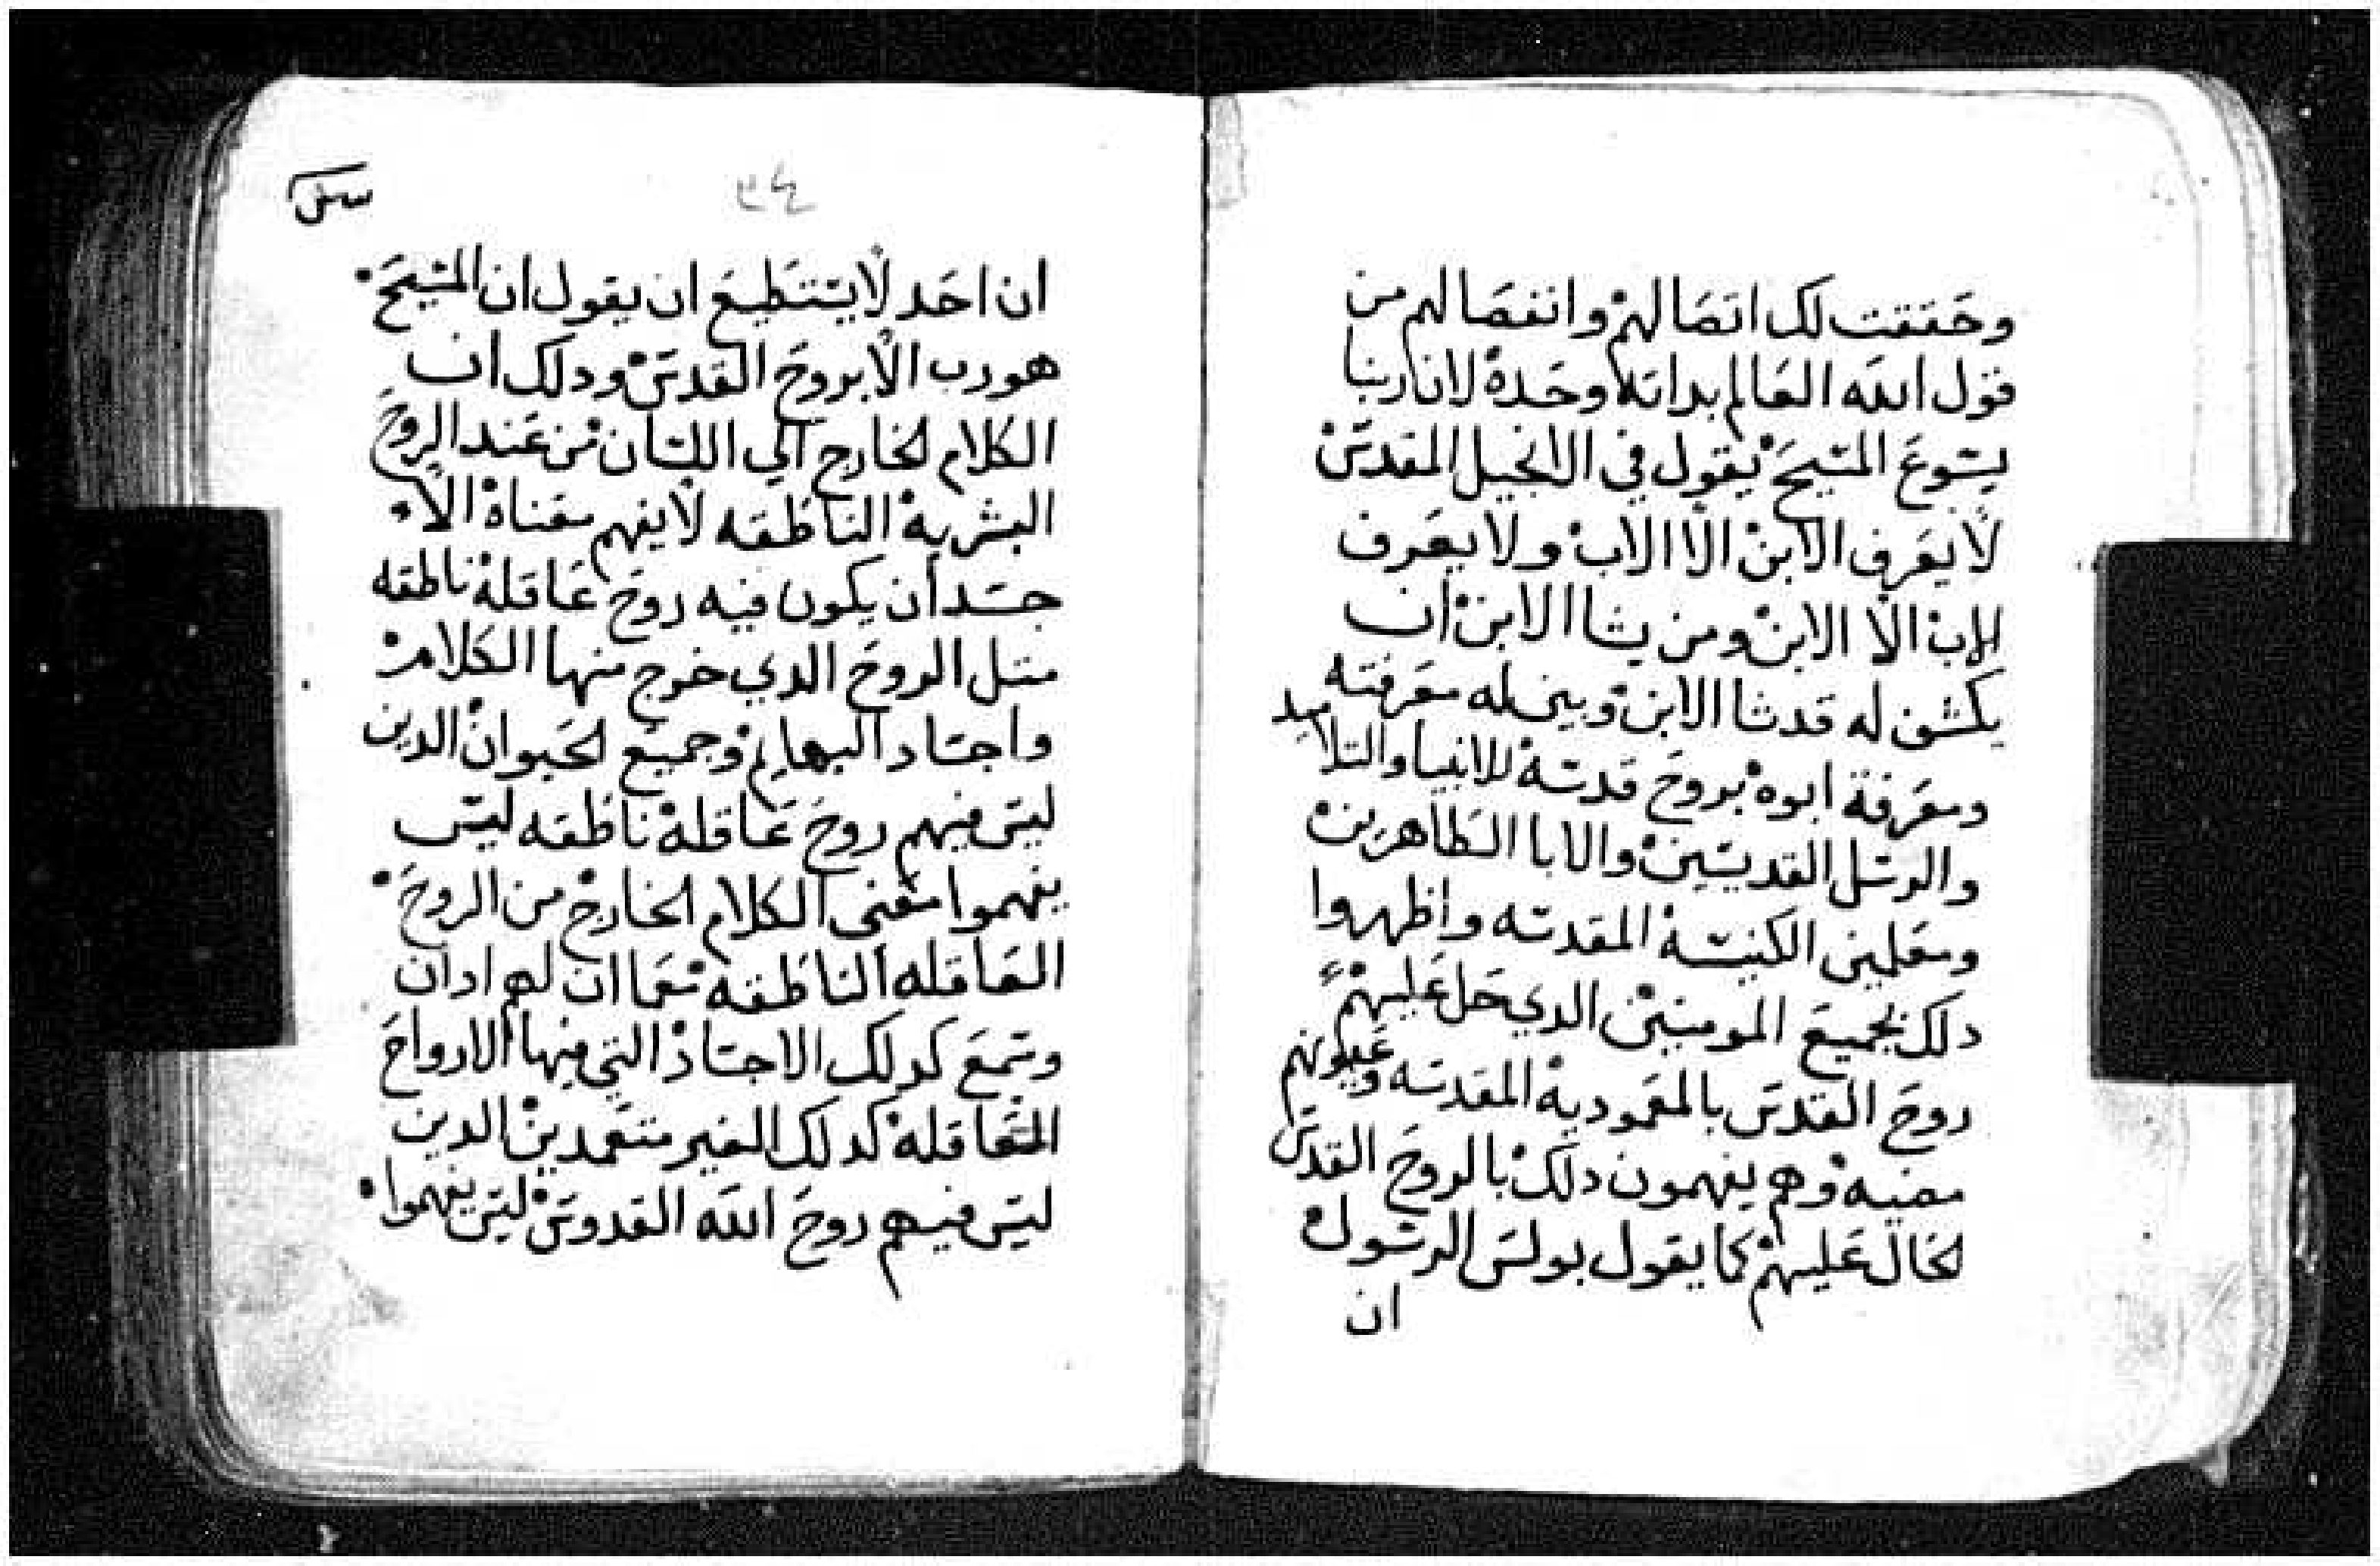 وحققت لك اتصالهم وانفصالهم من
قول الله العالم بداته وحده لان ربنا
يسوع المسيح يقول في الانجيل المقدس
لا يعرف الابن الا الاب ولا يعرف
الاب الا الابن ومن يشا الابن ان
يكشف له قد شا الابن وبين له معرفته
ومعرفة ابوه بروح قدسه للانبيا والتلاميد
والرسل القديسين والابا الطاهرين
ومعلمين الكنيسة المقدسه واظهروا
دلك لجميع المومنين الدي حل عليهم
روح القدس بالمعموديه المقدسه
وهم يفهمون دلك بالروح القدس
الحال عليهم كما يقول بولس الرسول
ان
ان احد لا يستطيع ان يقول ان المسيح
هو رب الا بروح القدس ودلك ان
الكلام الخارج الي اللسان من عند الروح
البشرية الناطقه لا يفهم معناه الا
جسد ان يكون فيه روح عاقلة ناطقه
متل الروح الدي خرج منها الكلام
واجساد البهايم وجميع الحيوان الدين
ليس فيهم روح عاقلة ناطقه ليس
يفهموا معني الكلام الخارج من الروح
العاقله الناطقه معما ان لهم ادان
وتسمع كدلك الاجساد التي فيها الارواح
العاقلة كدلك الغير متعمدين الدين
ليس فيهم روح الله القدوس ليس يفهموا